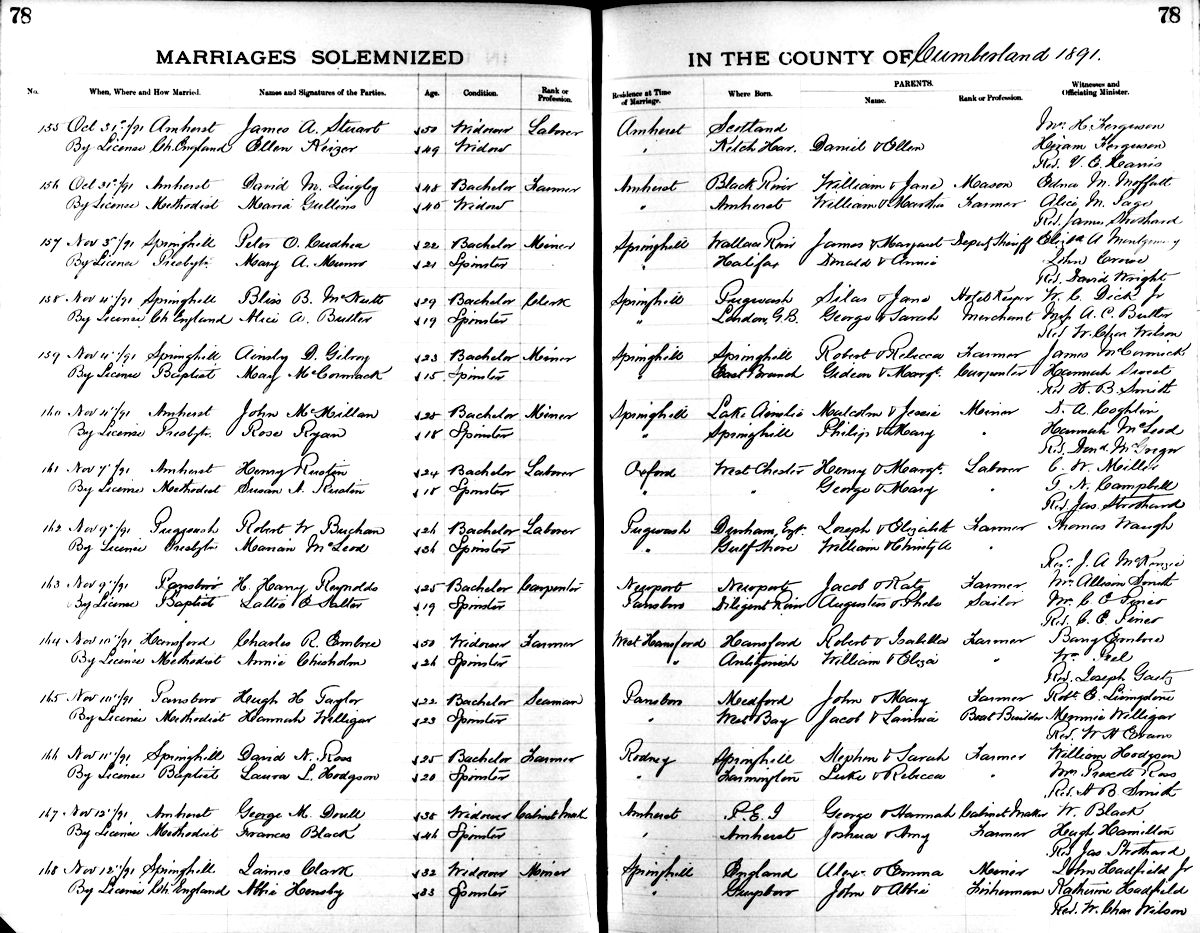 78
78
MARRIAGES SOLEMNIZED
IN THE COUNTY OF Cumberland 1891.
No. When, Where and How Married. Names and Signatures of the Parties. Age. Condition. Rank or Profession. Residence at Time of Marriage. Where Born. PARENTS. Name. Rank or Profession. Witnesses and Officiating Minister.
155 Oct 31st/91 Amherst James A. Stuart 50 Widower Laborer Amherst Scotland H. Ferguson
By License Ch. England Ellen Keizer 49 Widow " Ketch Har. Daniel & Ellen Hiram Ferguson
Rev. V. E. Harris
156 Oct 31st/91 Amherst David M. Lingley 48 Bachelor Farmer Amherst Black River William & Jane Mason Edna M. Moffatt
By License Methodist Maria Gullins 40 Widow " Amherst William & Martha Farmer Alice M. Page
Rev. James Strothard
157 Nov 3rd/91 Springhill Peter O. Cudhea 22 Bachelor Miner Springhill Wallace River James & Margaret Deputy Sheriff A Montgomery
By License Presbytn. Mary A. Munro 21 Spinster " Halifax Donald & Annie John
Rev. David Wright
158 Nov 4th/91 Springhill Bliss B. McNutt 29 Bachelor Clerk Springhill Pugwash Silas & Jane Hotel Keeper W. C. Dick Jr
By License Ch England Alice A. Butler 19 Spinster " London, G.B. George & Sarah Merchant A. C. Butler
Rev. W. Chas Wilson
159 Nov 4th/91 Springhill Ainsley D. Gilroy 23 Bachelor Miner Springhill Springhill Robert & Rebecca Farmer James McCormick
By License Baptist May McCormack 15 Spinster " East Branch Gideon & Margt. Carpenter Hannah
Rev H. B. Smith
160 Nov 4th/91 Amherst John McMillan 28 Bachelor Miner Springhill Lake Ainslie Malcolm & Jessie Miner D. A. Coghlin
By License Presbytn. Rose Ryan 18 Spinster " Springhill Philip & Mary " Hannah McLeod
Rev. Dond. McGregor
161 Nov 7th/91 Amherst Henry Rustin 24 Bachelor Laborer Oxford West Chester Henry & Margt. Laborer C. W. Miller
By License Methodist Susan A. Rustin 18 Spinster " " George & Mary " T. N. Campbell
Rev Jas Strothard
162 Nov 9th/91 Puggwash Robert W. Buchan 26 Bachelor Laborer Pugwash Durham, Eng. Joseph & Elizabeth Farmer Thomas Waugh
By License Presbytn Marian McLeod 36 Spinster " Gulf Shore William & Christy A "
Rev. J. A. McKenzie
163 Nov 9th/91 Parrsboro H. Harry Reynolds 25 Bachelor Carpenter Newport Newport Jacob & Katy Farmer Mrs Allison Smith
By License Baptist Lallie B Salter 19 Spinster Parrsboro Diligent River Augustus & Phebe Sailor Mrs. C. E. Pineo
Rev. C. E. Pineo
164 Nov 10th/91 Hansford Charles R. Embree 50 Widower Farmer West Hansford Hansford Robert & Isabella Farmer Embree
By License Methodist Annie Chisholm 26 Spinster " Antigonish William & Eliza " Wm Peel
Rev. Joseph Gaetz
165 Nov 10th/91 Parrsboro Hugh H Taylor 22 Bachelor Seaman Parrsboro Medford John & Mary Farmer Robt E. Livingstone
By License Methodist Hannah Willigar 23 Spinster " West Bay Jacob & Lavinia Boat Builder Minnie Willigar
Rev. W H Evans
166 Nov 11th/91 Springhill David N. Ross 25 Bachelor Farmer Rodney Springhill Stephen & Sarah Farmer William Hodgson
By License Baptist Laura L. Hodgson 20 Spinster " Farmington Luke & Rebecca " Mrs. Prescott Ross
Rev. H B Smith
167 Nov 12th/91 Amherst George M. Doull 38 Widower Cabinet Mak. Amherst P.E.I George & Hannah Cabinet Maker W. Black
By License Methodist Frances Black 46 Spinster " Amherst Joshua & Amy Farmer Hugh Hamilton
Rev Jas Strothard
168 Nov 12th/91 Springhill James Clark 32 Widower Miner Springhill England Alexr. & Emma Miner John Hadfield Jr
By License Ch England Abbie Hensby 33 Spinster " Guysboro John & Abbie Fisherman Katherine Hadfield
Rev. W. Chas Wilson